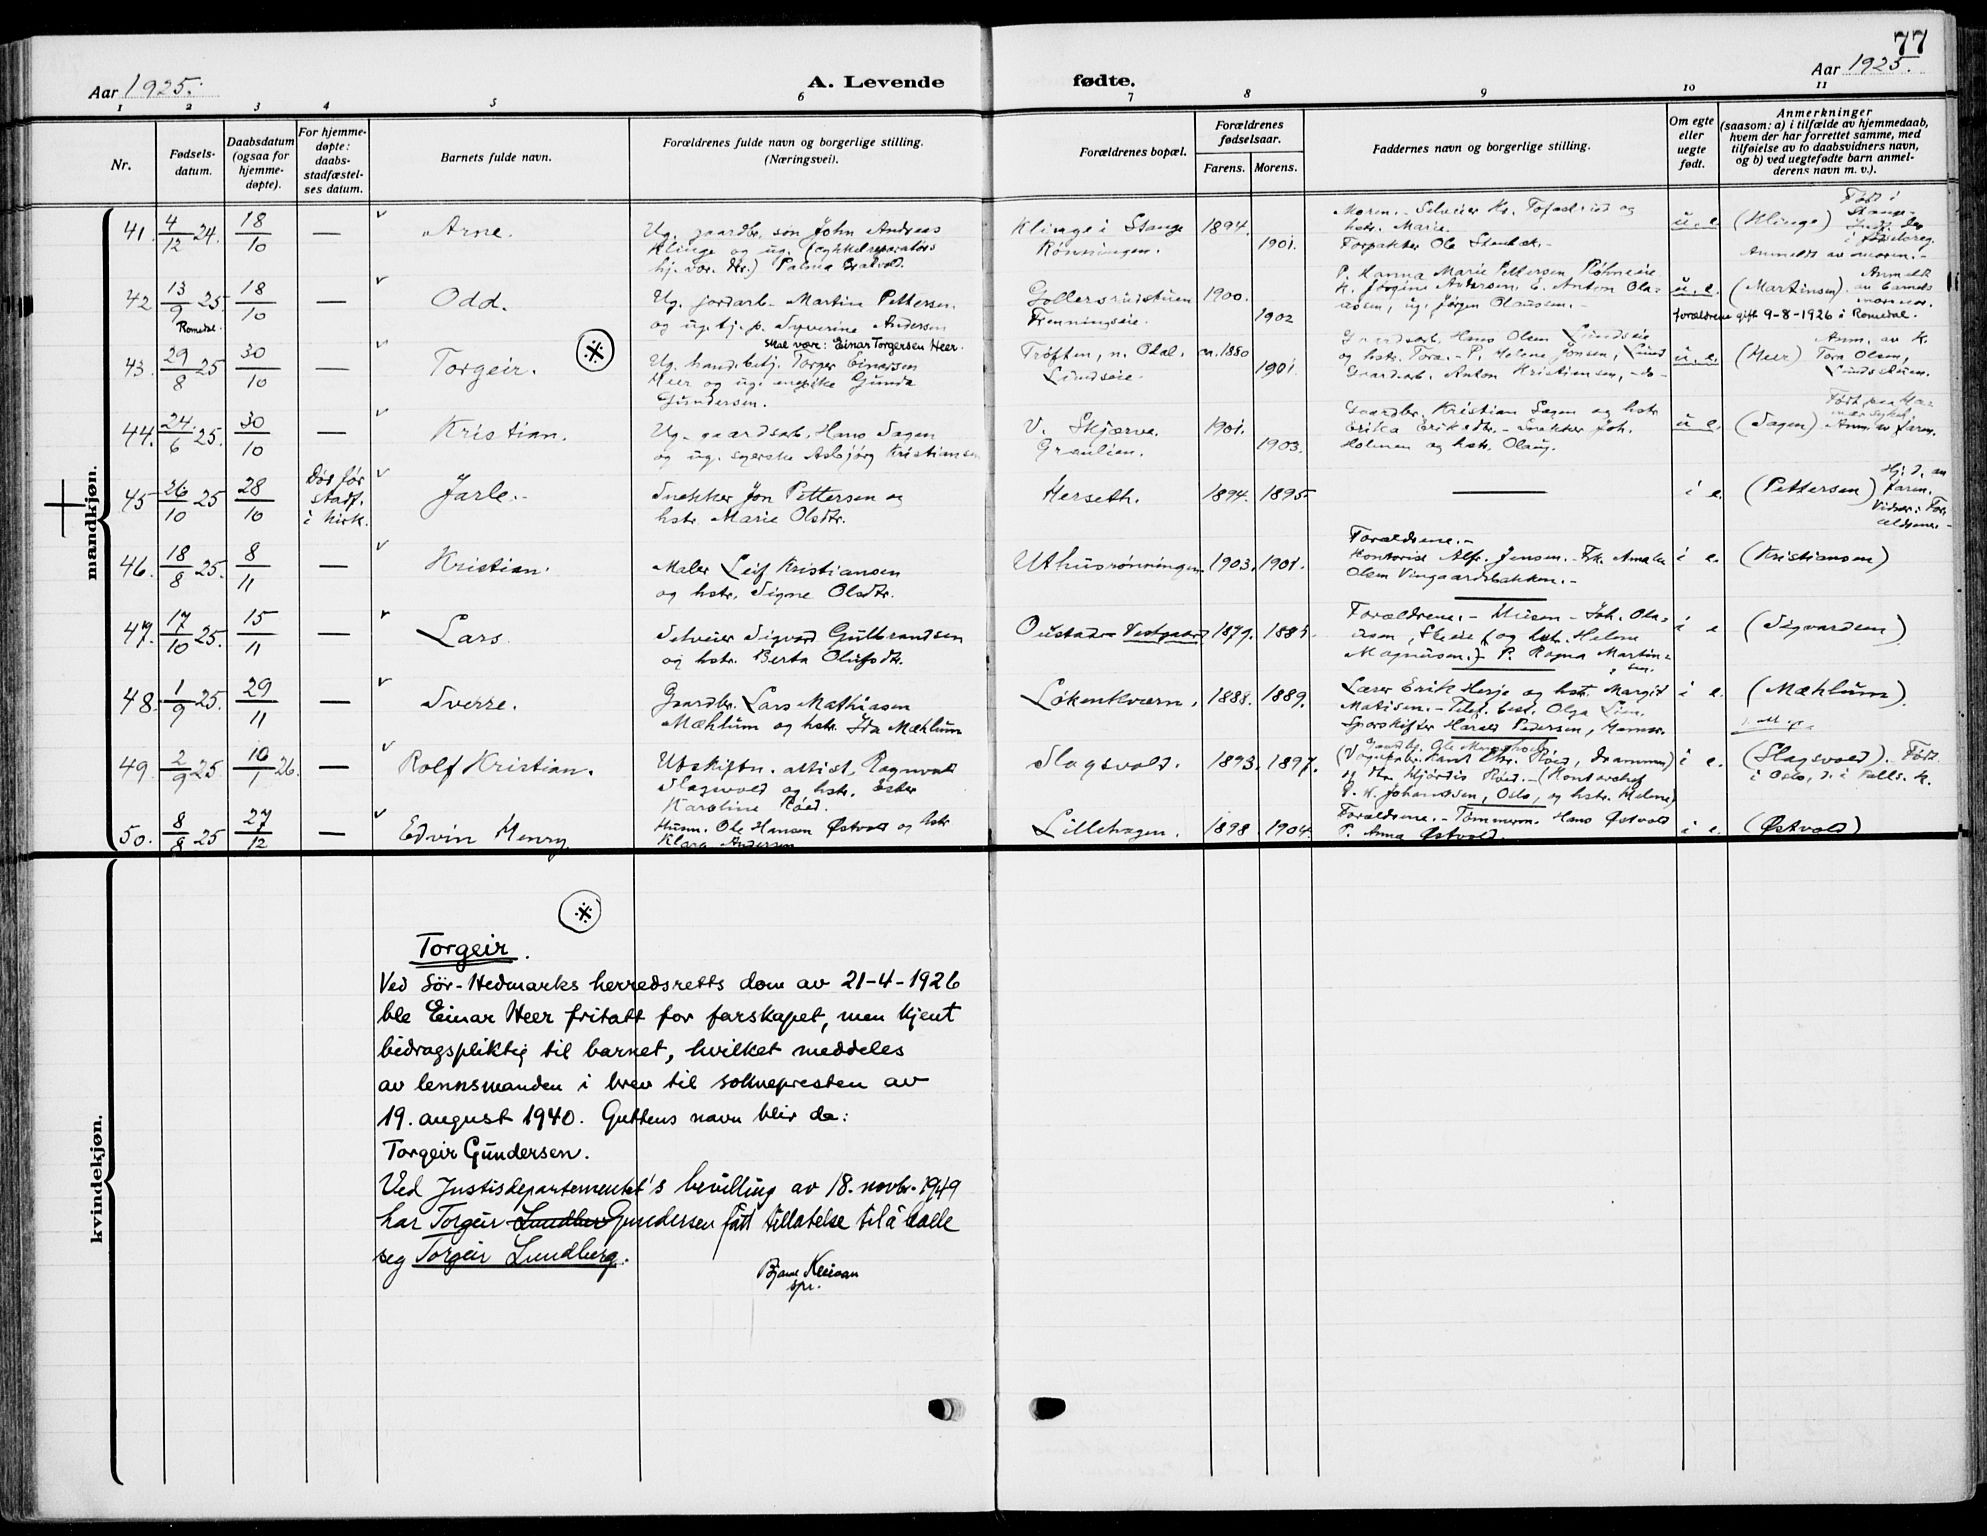 77
Aar 1925.
A. Levende fødte.
Aar 1925.
1 2 3 4 5 6 7 8 9 10 11
Nr.
Fødsels-
datum.
Daabsdatum
(ogsaa for
hjemme-
døpte).
For hjemme-
døpte:
daabs-
stadfæstel-
ses datum.
Barnets fulde navn.
Forældrenes fulde navn og borgerlige stilling.
(Næringsvei).
Forældrenes bopæl.
Forældrenes
fødselsaar.
Farens. Morens.
Faddernes navn og borgerlige stilling.
Om egte
eller
uegte
født.
Anmerkninger
(saasom: a) i tilfælde av hjemmedaab,
hvem der har forrettet samme, med
tilføielse av to daabsvidners navn,
og b) ved uegtefødte barn anmel-
derens navn m. v.).
mandkjøn.
41. 4/12 24. 18/10 — Arne.
Ug. gaardbr. søn John Andreas
Klinge og ug. (cykkelreparatørs
hj. vær. dtr.)  Palma
Klinge i Stange
Rønningen.
1894. 1901.
Moren. - Selveier Kr. Tofastrud og
hstr. Marie.
Forpakter Ole Stenbæk. -
u. e. (Klinge)
Født i
Stange
Anmeldt av moren. -
42 13/9 25 Romedal 18/10 — Odd.
Ug. jordarb. Martin Pettersen
og ug. tj. p. Syverine Andersen
Gollersrudstuen
Frenningseie.
1900. 1902
P. Hanna Marie Pettersen, Røhneeie
K. Jørgine Andersen. E. Anton Ola-
asen, ug. Jørgen Olaussen. -
u. e. (Martinsen)
Anmeldt
av barnets
mormor.
forældrene gift 9-8-1926 i Romedal.
43. 29/8 25 30/10 — Torgeir.
Skal vær: Einar Torgersen Heer.
Ug. handelsbetj. Torger Einarsen
Heer og ug. Gunda
Gundersen.
Trøften, n. Odal.
Lundseie.
ca. 1880 1901.
Gaardsarb. Hans Olsen Lundseie
og hstr. Tora. - P. Helene Jensen, Lund
Gaardsarb. Anton Kristiansen, -do-
u. e. (Heer)
Anm. av K.
Tora Olsen,
Lundsstuen.
44. 24/6 25. 30/10 — Kristian.
Ug. gaardsarb. Hans Sagen
og ug. syerske Asbjørg Kristiansen
V. Skjærve.
Graulien.
1901. 1903.
Gaardbr. Kristian Sagen og hstr
Erika Eriksdtr. - Snekker Joh.
Holmen og hstr. Olaug.
u e. (Sagen)
Anm. av faren.
45 26/10 25 28/10
Død før
stadf.
i kirk.
Jarle. -
Snekker Jon Pettersen og
hstr. Marie Olsdtr.
Herseth. 1894. 1895.
—
i e. (Pettersen)
Hj. d. av
faren.
Vidner: For-
ældrene. -
46. 18/8 25. 8/11 — Kristian.
Maler Leif Kristiansen
og hstr. Signe Olsdtr.
Uthusrønningen 1903. 1901.
Forældrene. -
Kontorist Alfr. Jensen. - Frk. Amalie
Olsen Vingaardsbakken. -
i e. (Kristiansen)
47. 17/10 25. 15/11 — Lars.
Selveier Sigvard Gulbrandsen
og hstr. Berta Olufsdtr.
Oustad - Vestgaard 1879. 1885.
Forældrene. - Joh. Ola-
(og hstr. Helene
Magnussen.) - P. Ragna Martin-
sen.
i e (Sigvardsen)
48. 1/9 25. 29/11 — Sverre.
Gaardbr. Lars Mathiasen
Mæhlum og hstr. Ida Mæhlum
Løkenkværn. 1888. 1889.
Lærer Erik Herje og hstr. Margit
Matisen. - Telef. best. Olga Lien.
Sporskifter Harald Pedersen, Hamar.
i e. (Mæhlum).
49. 2/9 25 10/1 26. — Rolf Kristian.
Utskiftn. assist. Ragnvald
Slagsvold og hstr. Ester
Karoline Røed.
Slagsvold. 1893. 1897.
Røed, Drammen)
Hjørdis Røed. - (Kontorchef
Johansen, Oslo, og hstr. Helene)
i e. (Slagsvold). Født
i Oslo, d. i Valls. K.
50. 8/8 25 27/12 — Edvin Henry
Husm. Ole Hansen Østvold og hstr
Klara Andersen
Lillehagen. 1898. 1904
Forældrene. - Tømmerm. Hans Østvold
P. Anna Østvold.
i e. (Østvold)
kvindekjøn.
Torgeir.
Ved Sør-Hedmarks herredsretts dom av 21-4-1926
ble Einar Heer fritatt for farskapet, men kjent
bidragspliktig til barnet, hvilket meddeles
av lennsmanden i brev til soknepresten av
19. august 1940. Guttens navn blir da:
Torgeir Gundersen.
Ved Justisdepartementet's bevilling av 18. novbr. 1949
har Torgeir Lundber Gundersen fått tillatelse til å kalle
seg Torgeir Lundberg.
spr.